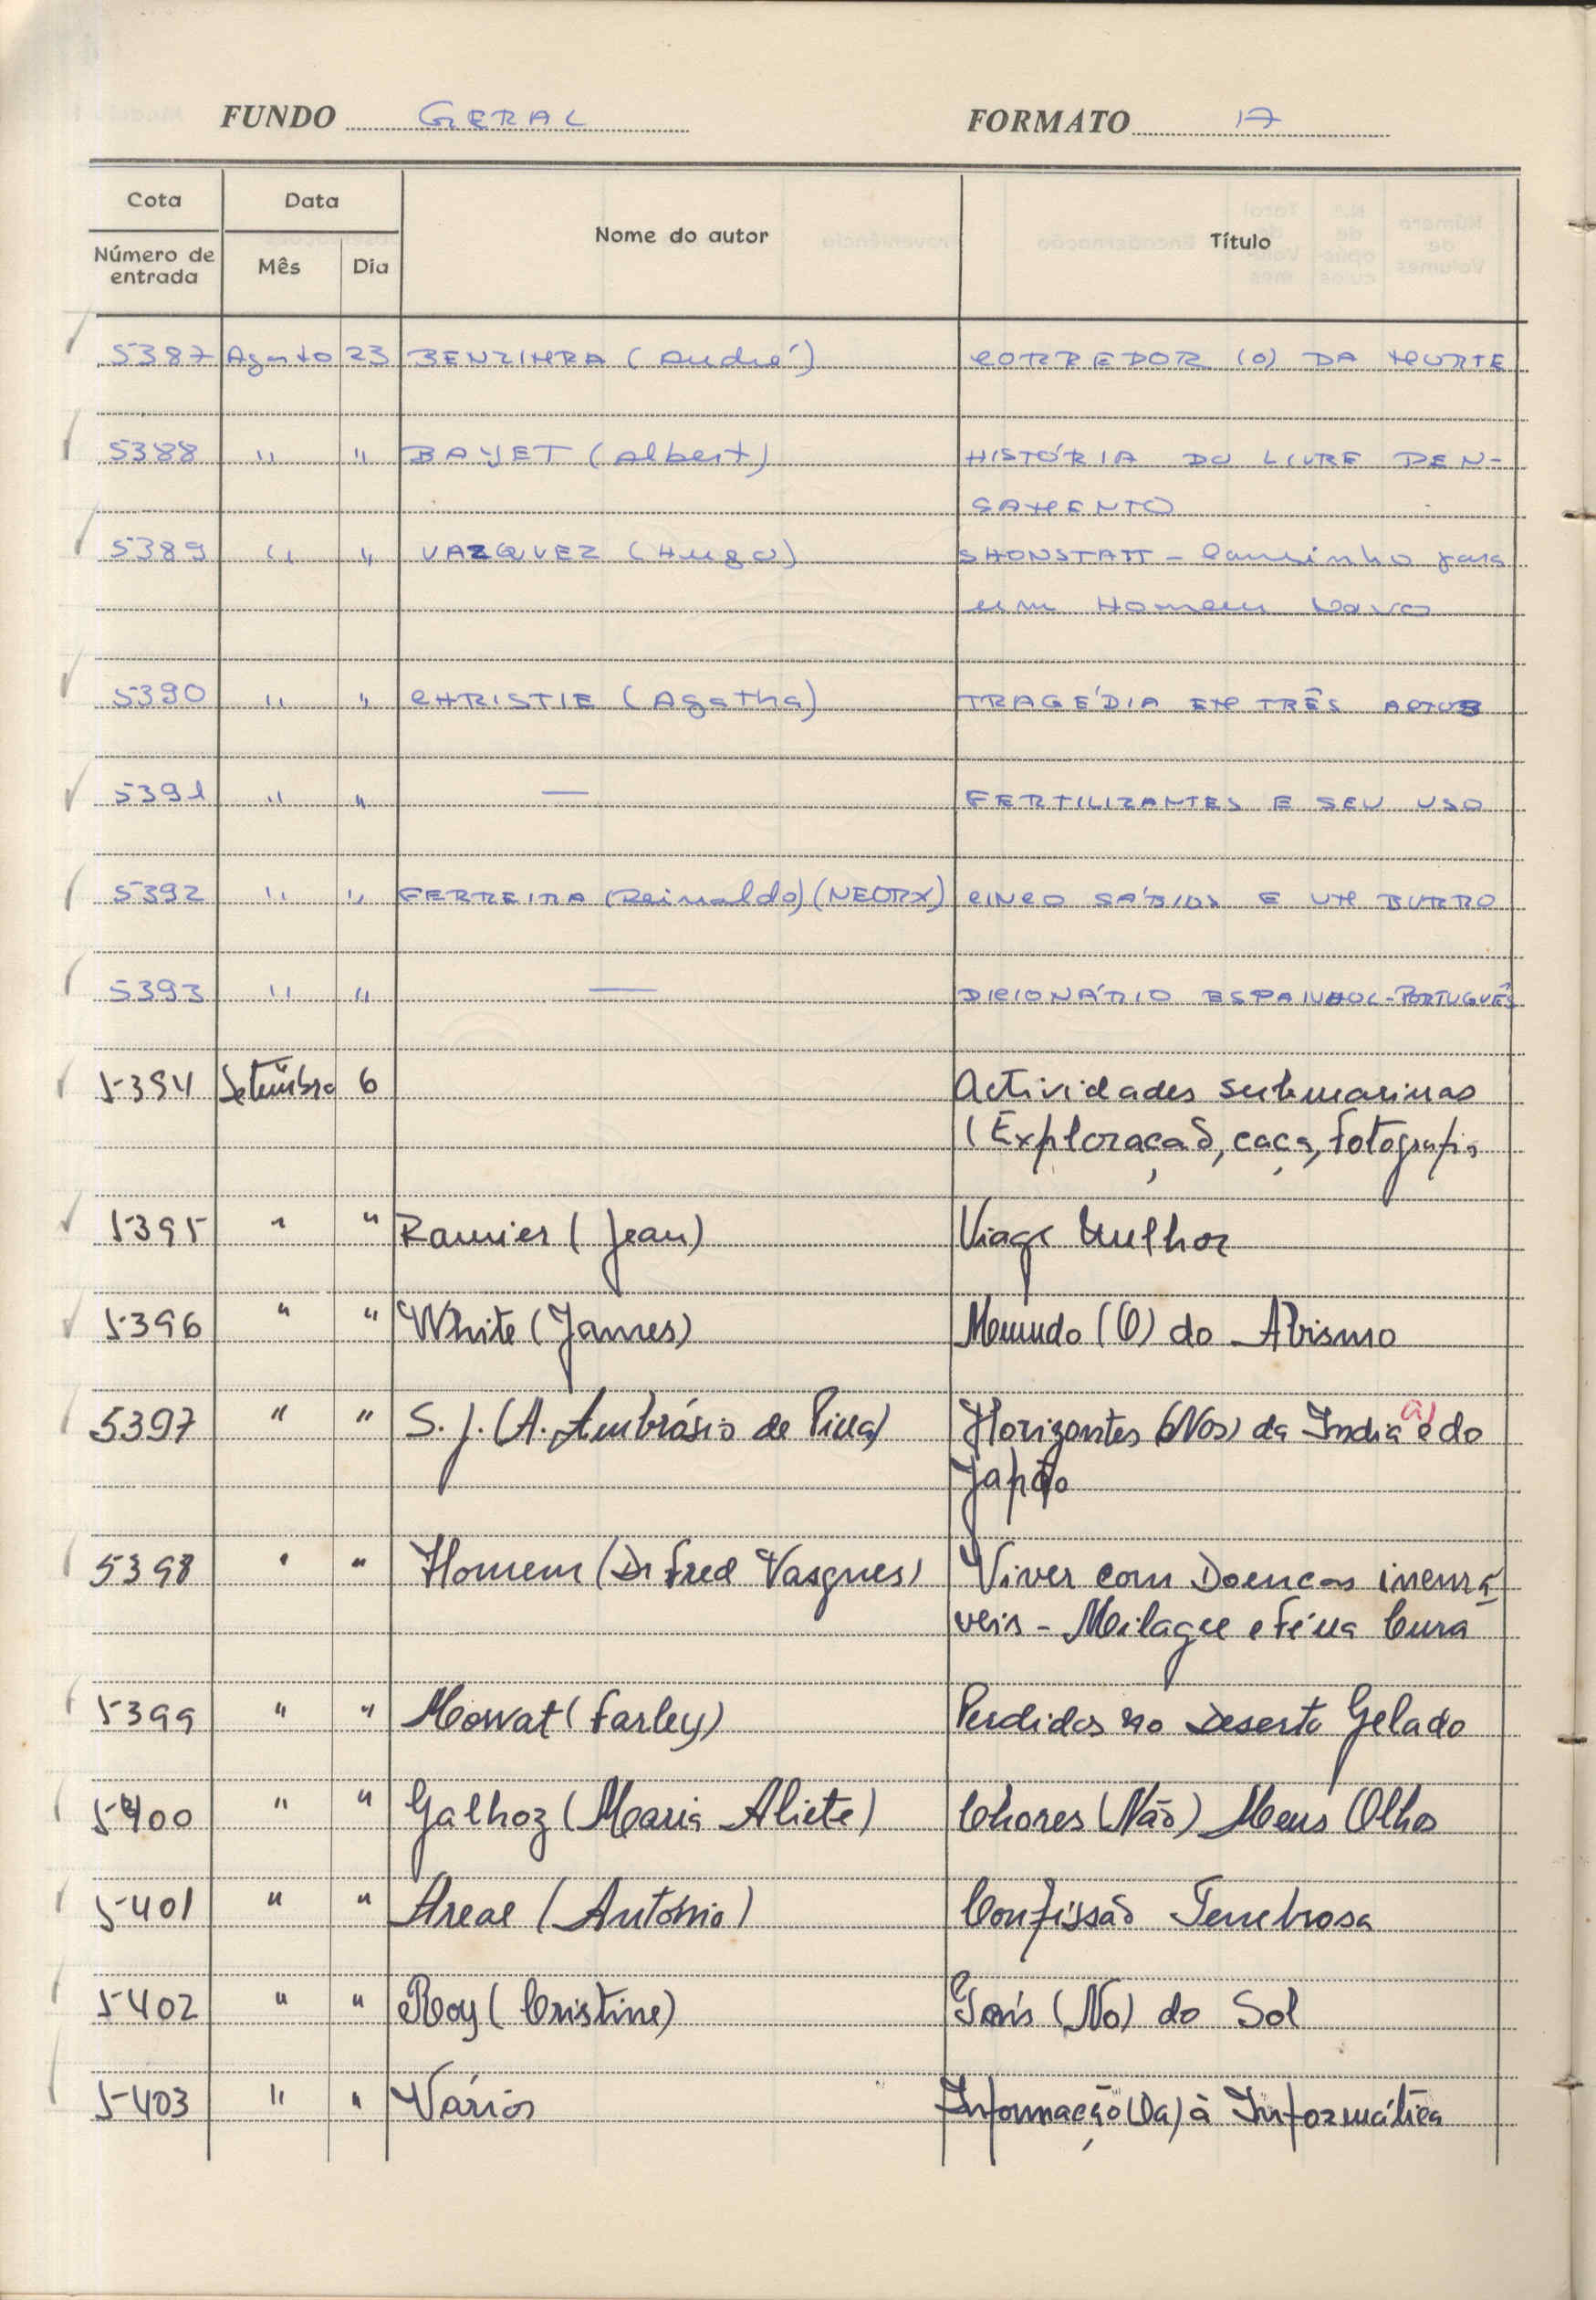 FUNDO GERAL FORMATO 17
Cota Data Nome do autor Título
Número de entrada Mês Dia
5387 Agosto 23 BENZIMRA (André) CORREDOR (O) DA MORTE
5388 " " BAYET (Albert) HISTÓRIA DO LIVRE PEN-
SAMENTO
5389 " " VAZQUEZ (Hugo) SHONSTATT - Caminho para
um Homem Novo
5390 " " CHRISTIE (Agatha) TRAGÉDIA EM TRÊS ACTOS
5391 " " — FERTILIZANTES E SEU USO
5392 " " FERREIRA (Reinaldo) (NEORX) CINCO SÁBIOS E UM BURRO
5393 " " — DICIONÁRIO ESPANHOL-PORTUGUÊS
5394 Setembro 6 Actividades submarinas
(Exploração, caça, fotografia
5395 " " (Jean) Viage
5396 " " White (James) Mundo (O) do Abismo
5397 " " S. J. (A. Ambrósio de Pina) Horizontes (Nos) da India e do
Japão
5398 " " Homem (Dr Fred Vasques) Viver com Doenças incurá
veis - Milagre e Fé na Cura
5399 " " Mowat (Farley) Perdidos no Deserto Gelado
5400 " " Galhoz (Maria Aliete) Chores (Não) Meus Olhos
5401 " " Areal (António) Confissão Tenebrosa
5402 " " Roy (Cristine) País (No) do Sol
5403 " " Vários Informação (Da) à Informática